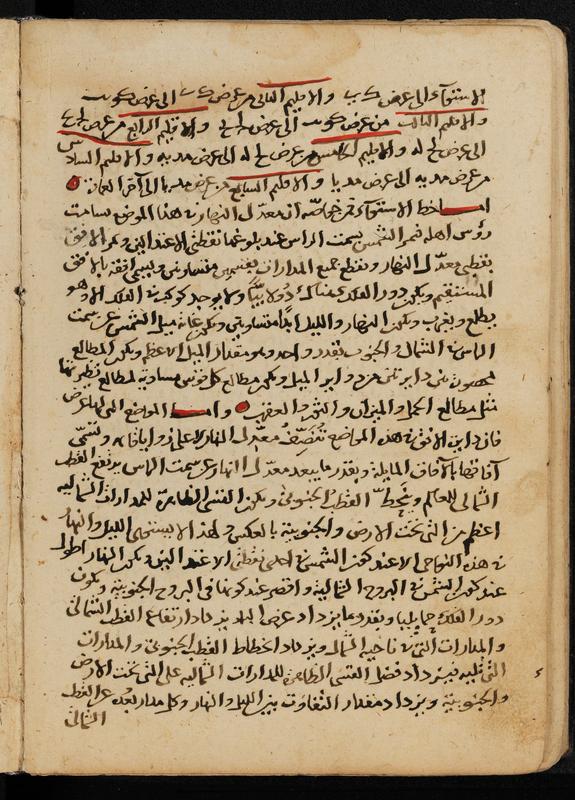 الاستواء الى عرض ك والاقليم الثانى من عرض ك الى عرض
والاقليم الثالث من عرض الى عرض والاقليم الرابع من عرض
الى عرض له والاقليم الخامس من عرض له الى عرض مد يه والاقليم السادس
من عرض مد يه الى عرض مد يا والاقليم السابع من عرض مد يا الى آخر العمارة
اما خط الاستواء فمن خواصه ان معدل النهار فى هذا الموضع يسامت
رؤس اهله فتمر الشمس بسمت الراس عند بلوغها نقطتى الاعتدالين ويمر الافق
بقطبى معدل النهار ويقطع جميع المدارات بقسمين متساويين ويسمى افقه بالافق
المستقيم ويكون دور الفلك هناك دولابيّا ولا يوجد كوكب فى الفلك الا وهو
يطلع ويغرب ويكون النهار والليل ابدا متساويين ويكون غاية ميل الشمس عن سمت
الراس فى الشمال والجنوب بقدر واحد وهو مقدار الميل الاعظم ويكون المطالع
من دوائر الميل ويكون مطالع كل قوس مساوية لمطالع نظيرتها
مثل مطالع الحمل والميزان والثور والعقرب واما المواضع التى لها عرض
فان دائرة الافق فى هذه المواضع تنصّف معدل النهار لا على زوايا قائمة وتسمّى
آفاقها بالآفاق المايلة وبقدر ما يبعد معدل النهار عن سمت الراس يرتفع القطب
الشمالى للعالم وينحطّ القطب الجنوبى ويكون القسى الظاهرة للمدارات الشمالية
اعظم من التى تحت الارض والجنوبية بالعكس ولهذا لا يستوى الليل والنهار
فى هذه النواحى الا عند كون الشمس فى احدى نقطتى الاعتدالين ويكون النهار اطول
عند كون الشمس فى البروج الشمالية واقصر عند كونها فى البروج الجنوبية ويكون
دور الفلك حمايليا وبقدر ما يزداد عرض البلد يزداد ارتفاع القطب الشمالى
والمدارات التى فى ناحية الشمال ويزداد انحطاط القطب الجنوبى والمدارات
التى تليه فيزداد فضل القسى الظاهرة للمدارات الشمالية على التى تحت الارض
والجنوبية ويزداد مقدار التفاوت بين الليل والنهار وكل مدار بعده عن القطب
الشمالى